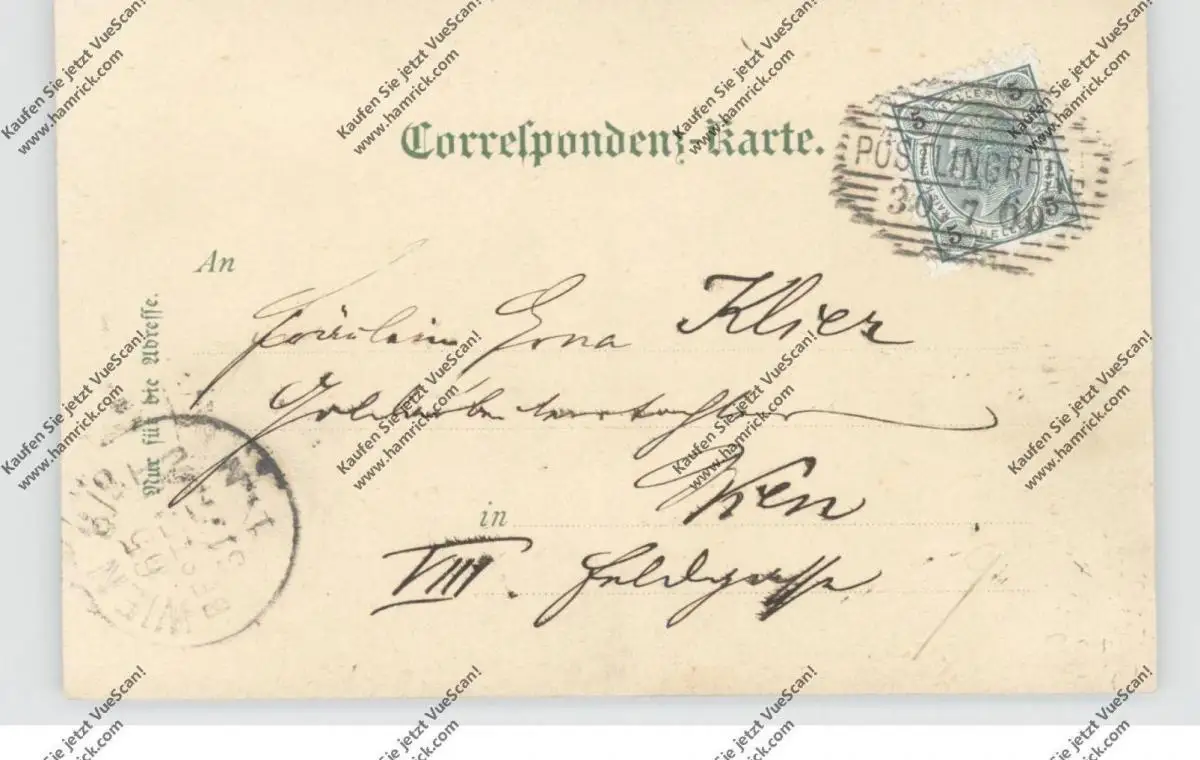 Correspondenz-Karte.
5 HELLER 5
PÖSTLINGBERG
30 7 60
An
Nur für die Adresse.
Fräulein Erna Klier
Wien
in
VIII. Feldgasse
9
WIEN
Kaufen Sie jetzt VueScan!
www.hamrick.com